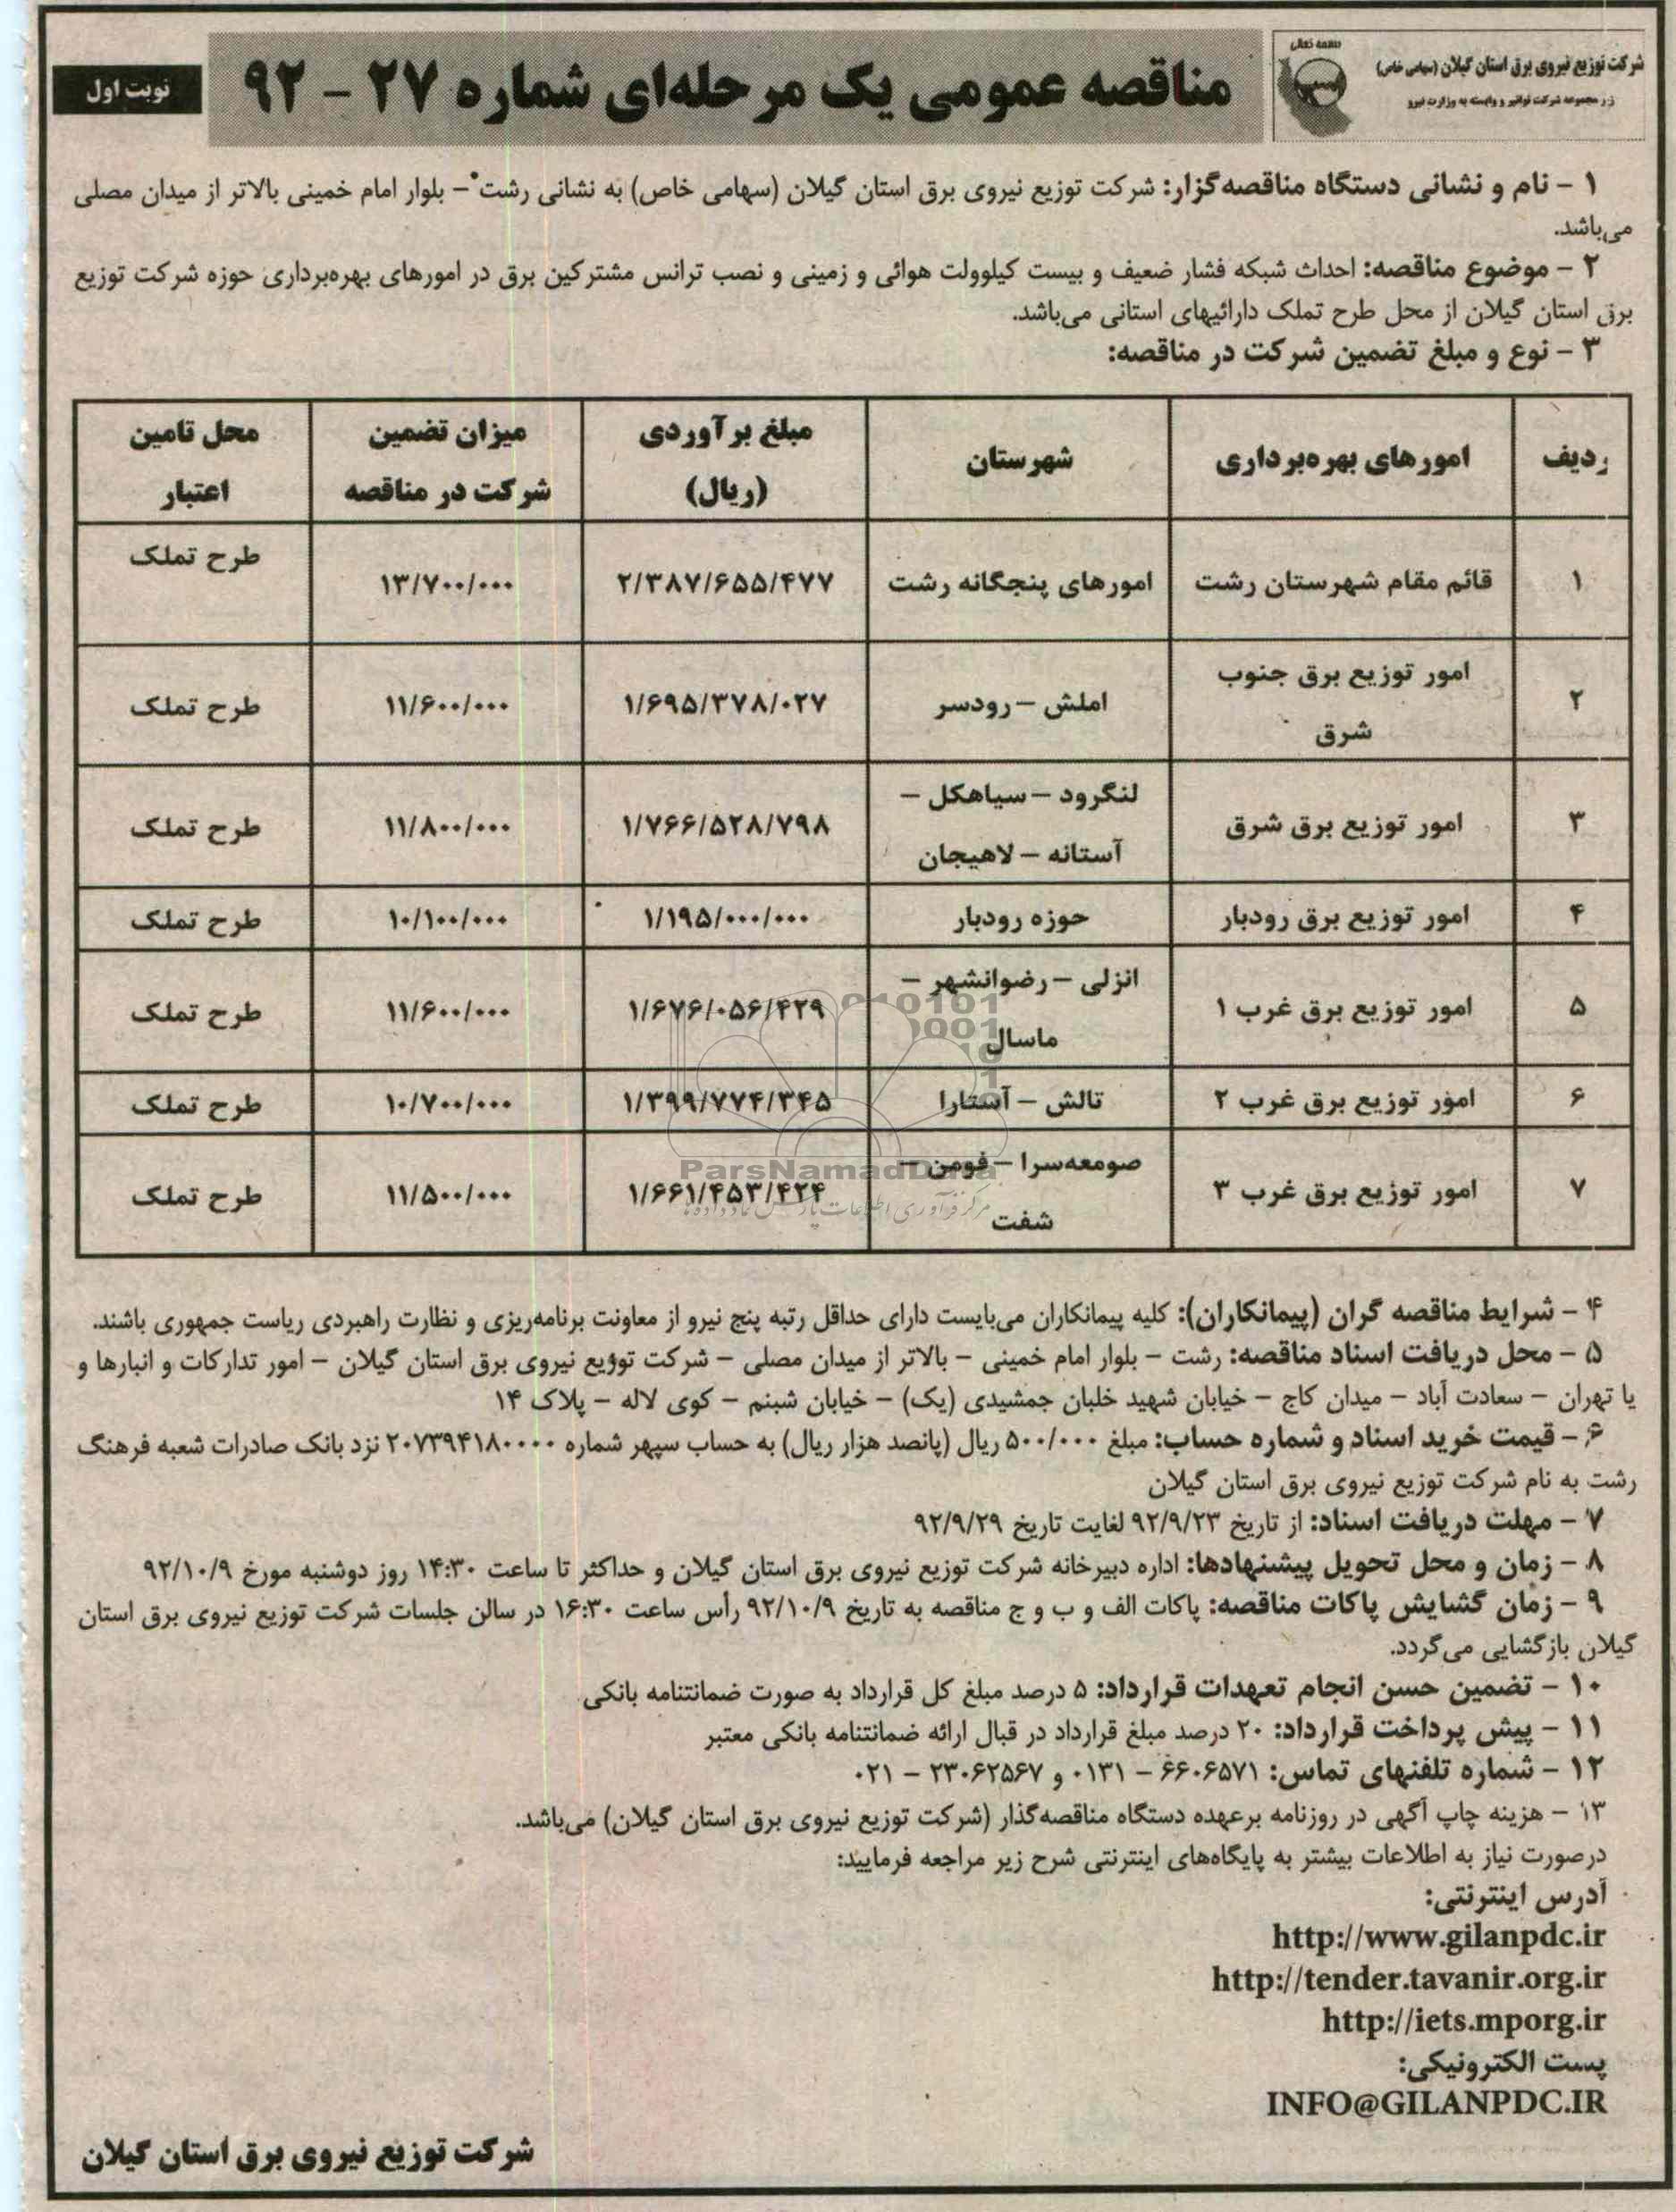 بسمه تعالی
شرکت توزیع نیروی برق استان گیلان (سهامی خاص)
زیر مجموعه شرکت توانیر و وابسته به وزارت نیرو
مناقصه عمومی یک مرحله‌ای شماره ۲۷ – ۹۲
نوبت اول
۱ – نام و نشانی دستگاه مناقصه‌گزار: شرکت توزیع نیروی برق استان گیلان (سهامی خاص) به نشانی رشت – بلوار امام خمینی بالاتر از میدان مصلی
می‌باشد.
۲ – موضوع مناقصه: احداث شبکه فشار ضعیف و بیست کیلوولت هوائی و زمینی و نصب ترانس مشترکین برق در امورهای بهره‌برداری حوزه شرکت توزیع
برق استان گیلان از محل طرح تملک دارائیهای استانی می‌باشد.
۳ – نوع و مبلغ تضمین شرکت در مناقصه:
ردیف | امورهای بهره‌برداری | شهرستان | مبلغ برآوردی (ریال) | میزان تضمین شرکت در مناقصه | محل تامین اعتبار
۱ | قائم مقام شهرستان رشت | امورهای پنجگانه رشت | ۲/۳۸۷/۶۵۵/۴۷۷ | ۱۳/۷۰۰/۰۰۰ | طرح تملک
۲ | امور توزیع برق جنوب شرق | املش – رودسر | ۱/۶۹۵/۳۷۸/۰۲۷ | ۱۱/۶۰۰/۰۰۰ | طرح تملک
۳ | امور توزیع برق شرق | لنگرود – سیاهکل – آستانه – لاهیجان | ۱/۷۶۶/۵۲۸/۷۹۸ | ۱۱/۸۰۰/۰۰۰ | طرح تملک
۴ | امور توزیع برق رودبار | حوزه رودبار | ۱/۱۹۵/۰۰۰/۰۰۰ | ۱۰/۱۰۰/۰۰۰ | طرح تملک
۵ | امور توزیع برق غرب ۱ | انزلی – رضوانشهر – ماسال | ۱/۶۷۶/۰۵۶/۴۲۹ | ۱۱/۶۰۰/۰۰۰ | طرح تملک
۶ | امور توزیع برق غرب ۲ | تالش – آستارا | ۱/۳۹۹/۷۷۴/۳۴۵ | ۱۰/۷۰۰/۰۰۰ | طرح تملک
۷ | امور توزیع برق غرب ۳ | صومعه‌سرا – فومن – شفت | ۱/۶۶۱/۴۵۳/۴۲۴ | ۱۱/۵۰۰/۰۰۰ | طرح تملک
ParsNamadData
مرکز فرآوری اطلاعات پارس نماد داده‌ها
۴ – شرایط مناقصه گران (پیمانکاران): کلیه پیمانکاران می‌بایست دارای حداقل رتبه پنج نیرو از معاونت برنامه‌ریزی و نظارت راهبردی ریاست جمهوری باشند.
۵ – محل دریافت اسناد مناقصه: رشت – بلوار امام خمینی – بالاتر از میدان مصلی – شرکت توزیع نیروی برق استان گیلان – امور تدارکات و انبارها و
یا تهران – سعادت آباد – میدان کاج – خیابان شهید خلبان جمشیدی (یک) – خیابان شبنم – کوی لاله – پلاک ۱۴
۶ – قیمت خرید اسناد و شماره حساب: مبلغ ۵۰۰/۰۰۰ ریال (پانصد هزار ریال) به حساب سپهر شماره ۲۰۷۳۹۴۱۸۰۰۰۰ نزد بانک صادرات شعبه فرهنگ
رشت به نام شرکت توزیع نیروی برق استان گیلان
۷ – مهلت دریافت اسناد: از تاریخ ۹۲/۹/۲۳ لغایت تاریخ ۹۲/۹/۲۹
۸ – زمان و محل تحویل پیشنهادها: اداره دبیرخانه شرکت توزیع نیروی برق استان گیلان و حداکثر تا ساعت ۱۴:۳۰ روز دوشنبه مورخ ۹۲/۱۰/۹
۹ – زمان گشایش پاکات مناقصه: پاکات الف و ب و ج مناقصه به تاریخ ۹۲/۱۰/۹ رأس ساعت ۱۶:۳۰ در سالن جلسات شرکت توزیع نیروی برق استان
گیلان بازگشایی می‌گردد.
۱۰ – تضمین حسن انجام تعهدات قرارداد: ۵ درصد مبلغ کل قرارداد به صورت ضمانتنامه بانکی
۱۱ – پیش پرداخت قرارداد: ۲۰ درصد مبلغ قرارداد در قبال ارائه ضمانتنامه بانکی معتبر
۱۲ – شماره تلفنهای تماس: ۶۶۰۶۵۷۱ – ۰۱۳۱ و ۲۳۰۶۲۵۶۷ – ۰۲۱
۱۳ – هزینه چاپ آگهی در روزنامه برعهده دستگاه مناقصه‌گذار (شرکت توزیع نیروی برق استان گیلان) می‌باشد.
درصورت نیاز به اطلاعات بیشتر به پایگاه‌های اینترنتی شرح زیر مراجعه فرمایید:
آدرس اینترنتی:
http://www.gilanpdc.ir
http://tender.tavanir.org.ir
http://iets.mporg.ir
پست الکترونیکی:
INFO@GILANPDC.IR
شرکت توزیع نیروی برق استان گیلان